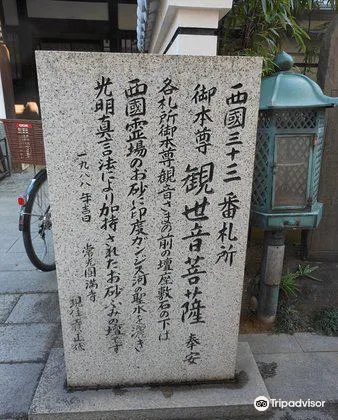 西國三十三番札所
御本尊 觀世音菩薩 奉安
各札所御本尊観音さまの前の壇座敷石の下は
西國霊場のお砂に印度ガンジス河の聖水を灑ぎ
光明真言法により加持されたお砂ふみ壇です
一九八八年
常光円満寺
現住
Tripadvisor